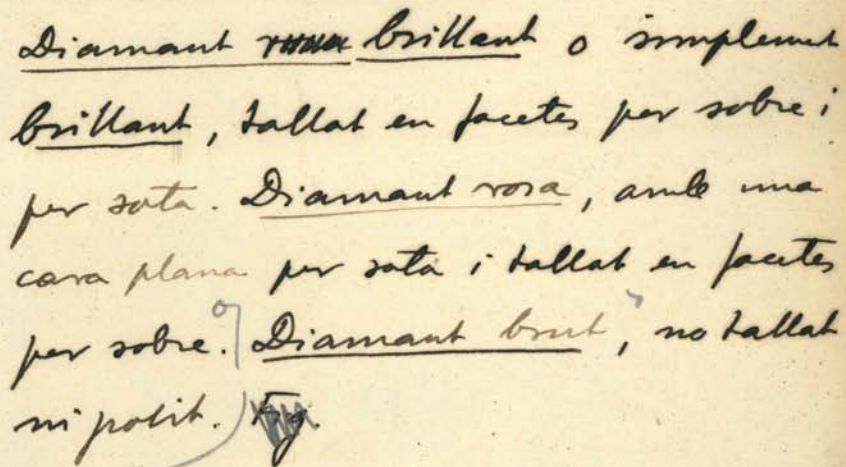 Diamant brillant o simplement
brillant, tallat en facetes per sobre i
per sota. Diamant rosa, amb una
cara plana per sota i tallat en facetes
per sobre. Diamant brut, no tallat
ni polit.